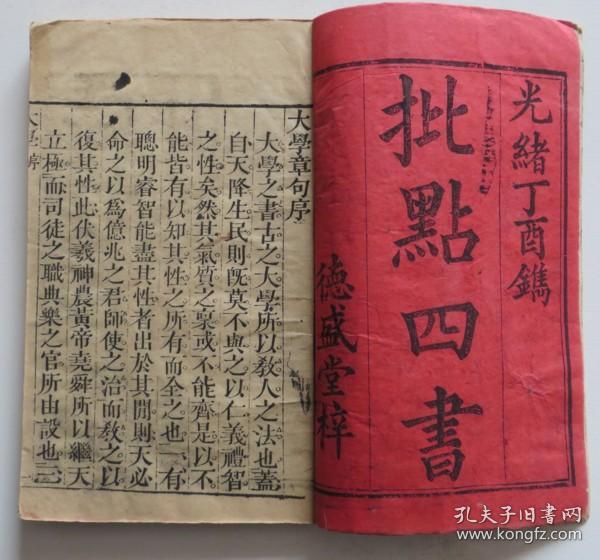 光緒丁酉鐫
批點四書
德盛堂梓
大學章句序
大學之書古之大學所以教人之法也蓋
自天降生民則既莫不與之以仁義禮智
之性矣然其氣質之稟或不能齊是以不
能皆有以知其性之所有而全之也一有
聰明睿智能盡其性者出於其間則天必
命之以爲億兆之君師使之治而教之以
復其性此伏羲神農黃帝堯舜所以繼天
立極而司徒之職典樂之官所由設也三
大學序
孔夫子旧书网
www.kongfz.com